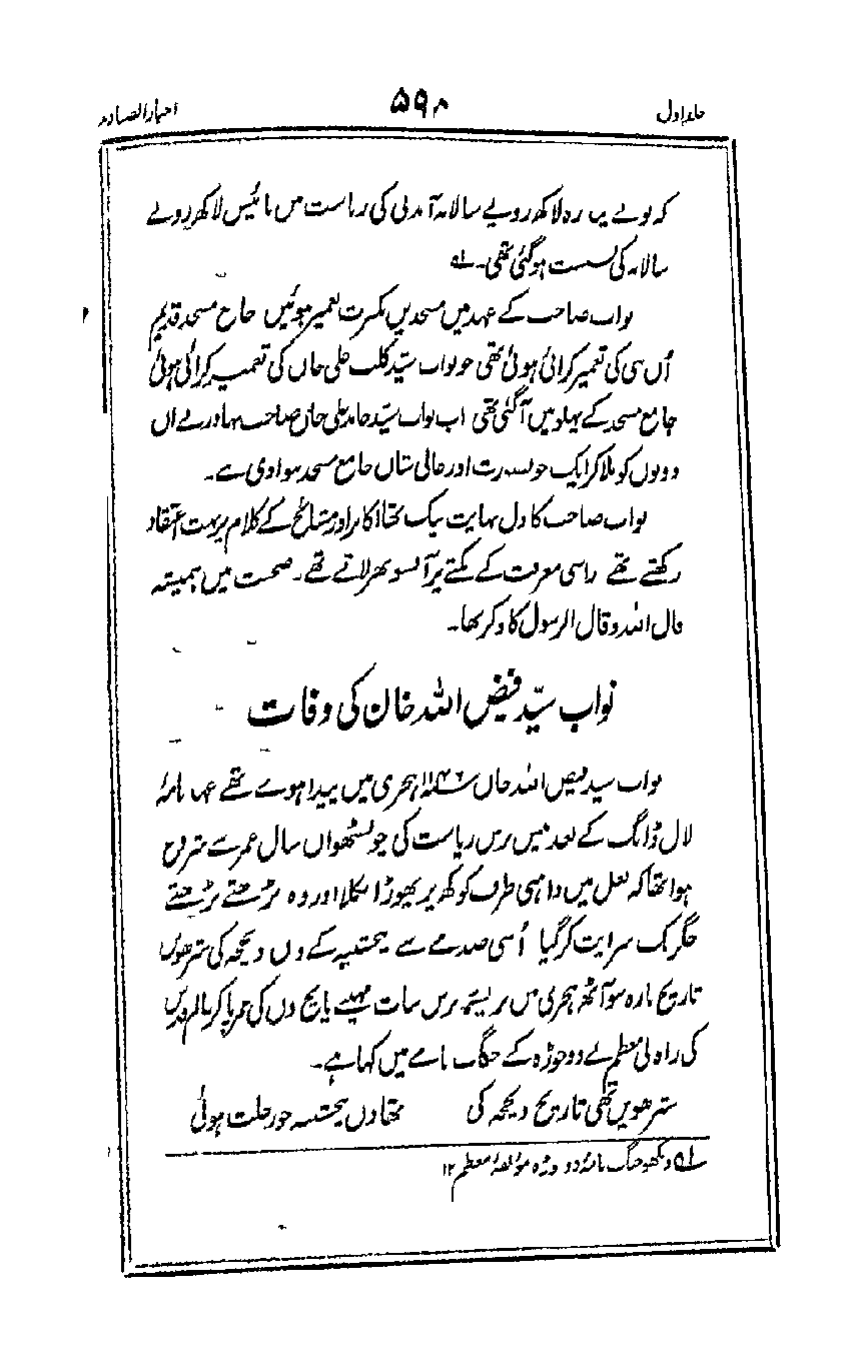 جلد اول ۵۹۸ اخبار الصنادید
کہ نوے پندرہ لاکھ روپے سالانہ آمدنی کی ریاست میں بائیس لاکھ روپے
سالانہ کی نسبت ہوگئی تھی۔ ؎۱
نواب صاحب کے عہد میں مسجدیں بکثرت تعمیر ہوئیں جامع مسجد قدیم
اُن ہی کی تعمیر کرائی ہوئی تھی جو نواب سیّد کلب علی خاں کی تعمیر کرائی ہوئی
جامع مسجد کے پہلو میں آگئی تھی اب نواب سیّد حامد علی خاں صاحب بہادر نے ان
دونوں کو ملا کر ایک خوبصورت اور عالی شان جامع مسجد بنوا دی ہے۔
نواب صاحب کا دل نہایت نیک تھا اکابر اور مشائخ کے کلام پر بہت اعتقاد
رکھتے تھے ذراسی معرفت کے نکتے پر آنسو بھر لاتے تھے۔ صحبت میں ہمیشہ
قال اللہ و قال الرسول کا ذکر تھا۔
نواب سیّد فیض اللہ خان کی وفات
نواب سید فیض اللہ خاں ۱۱۴۶ ہجری میں پیدا ہوے تھے عہد نامۂ
لال ڈانگ کے بعد بیس برس ریاست کی چونسٹھواں سال عمر سے شروع
ہوا تھا کہ بغل میں داہنی طرف کو کھ پر پھوڑا نکلا اور وہ بڑھتے بڑھتے
جگر تک سرایت کر گیا اُسی صدمے سے پنجشنبہ کے دن ذیحجہ کی سترھویں
تاریخ بارہ سو آٹھ ہجری میں تریسٹھ برس سات مہینے پانچ دن کی عمر پا کر عالم قدس
کی راہ لی معظم نے دوجوڑہ کے جنگ نامے میں کہا ہے۔
سترھویں تھی تاریخ ذیحجہ کی تھا دن پنجشنبہ جو رحلت ہوئی
؎۱ دیکھو جنگ نامۂ دوجوڑہ مؤلفۂ معظم ۱۲